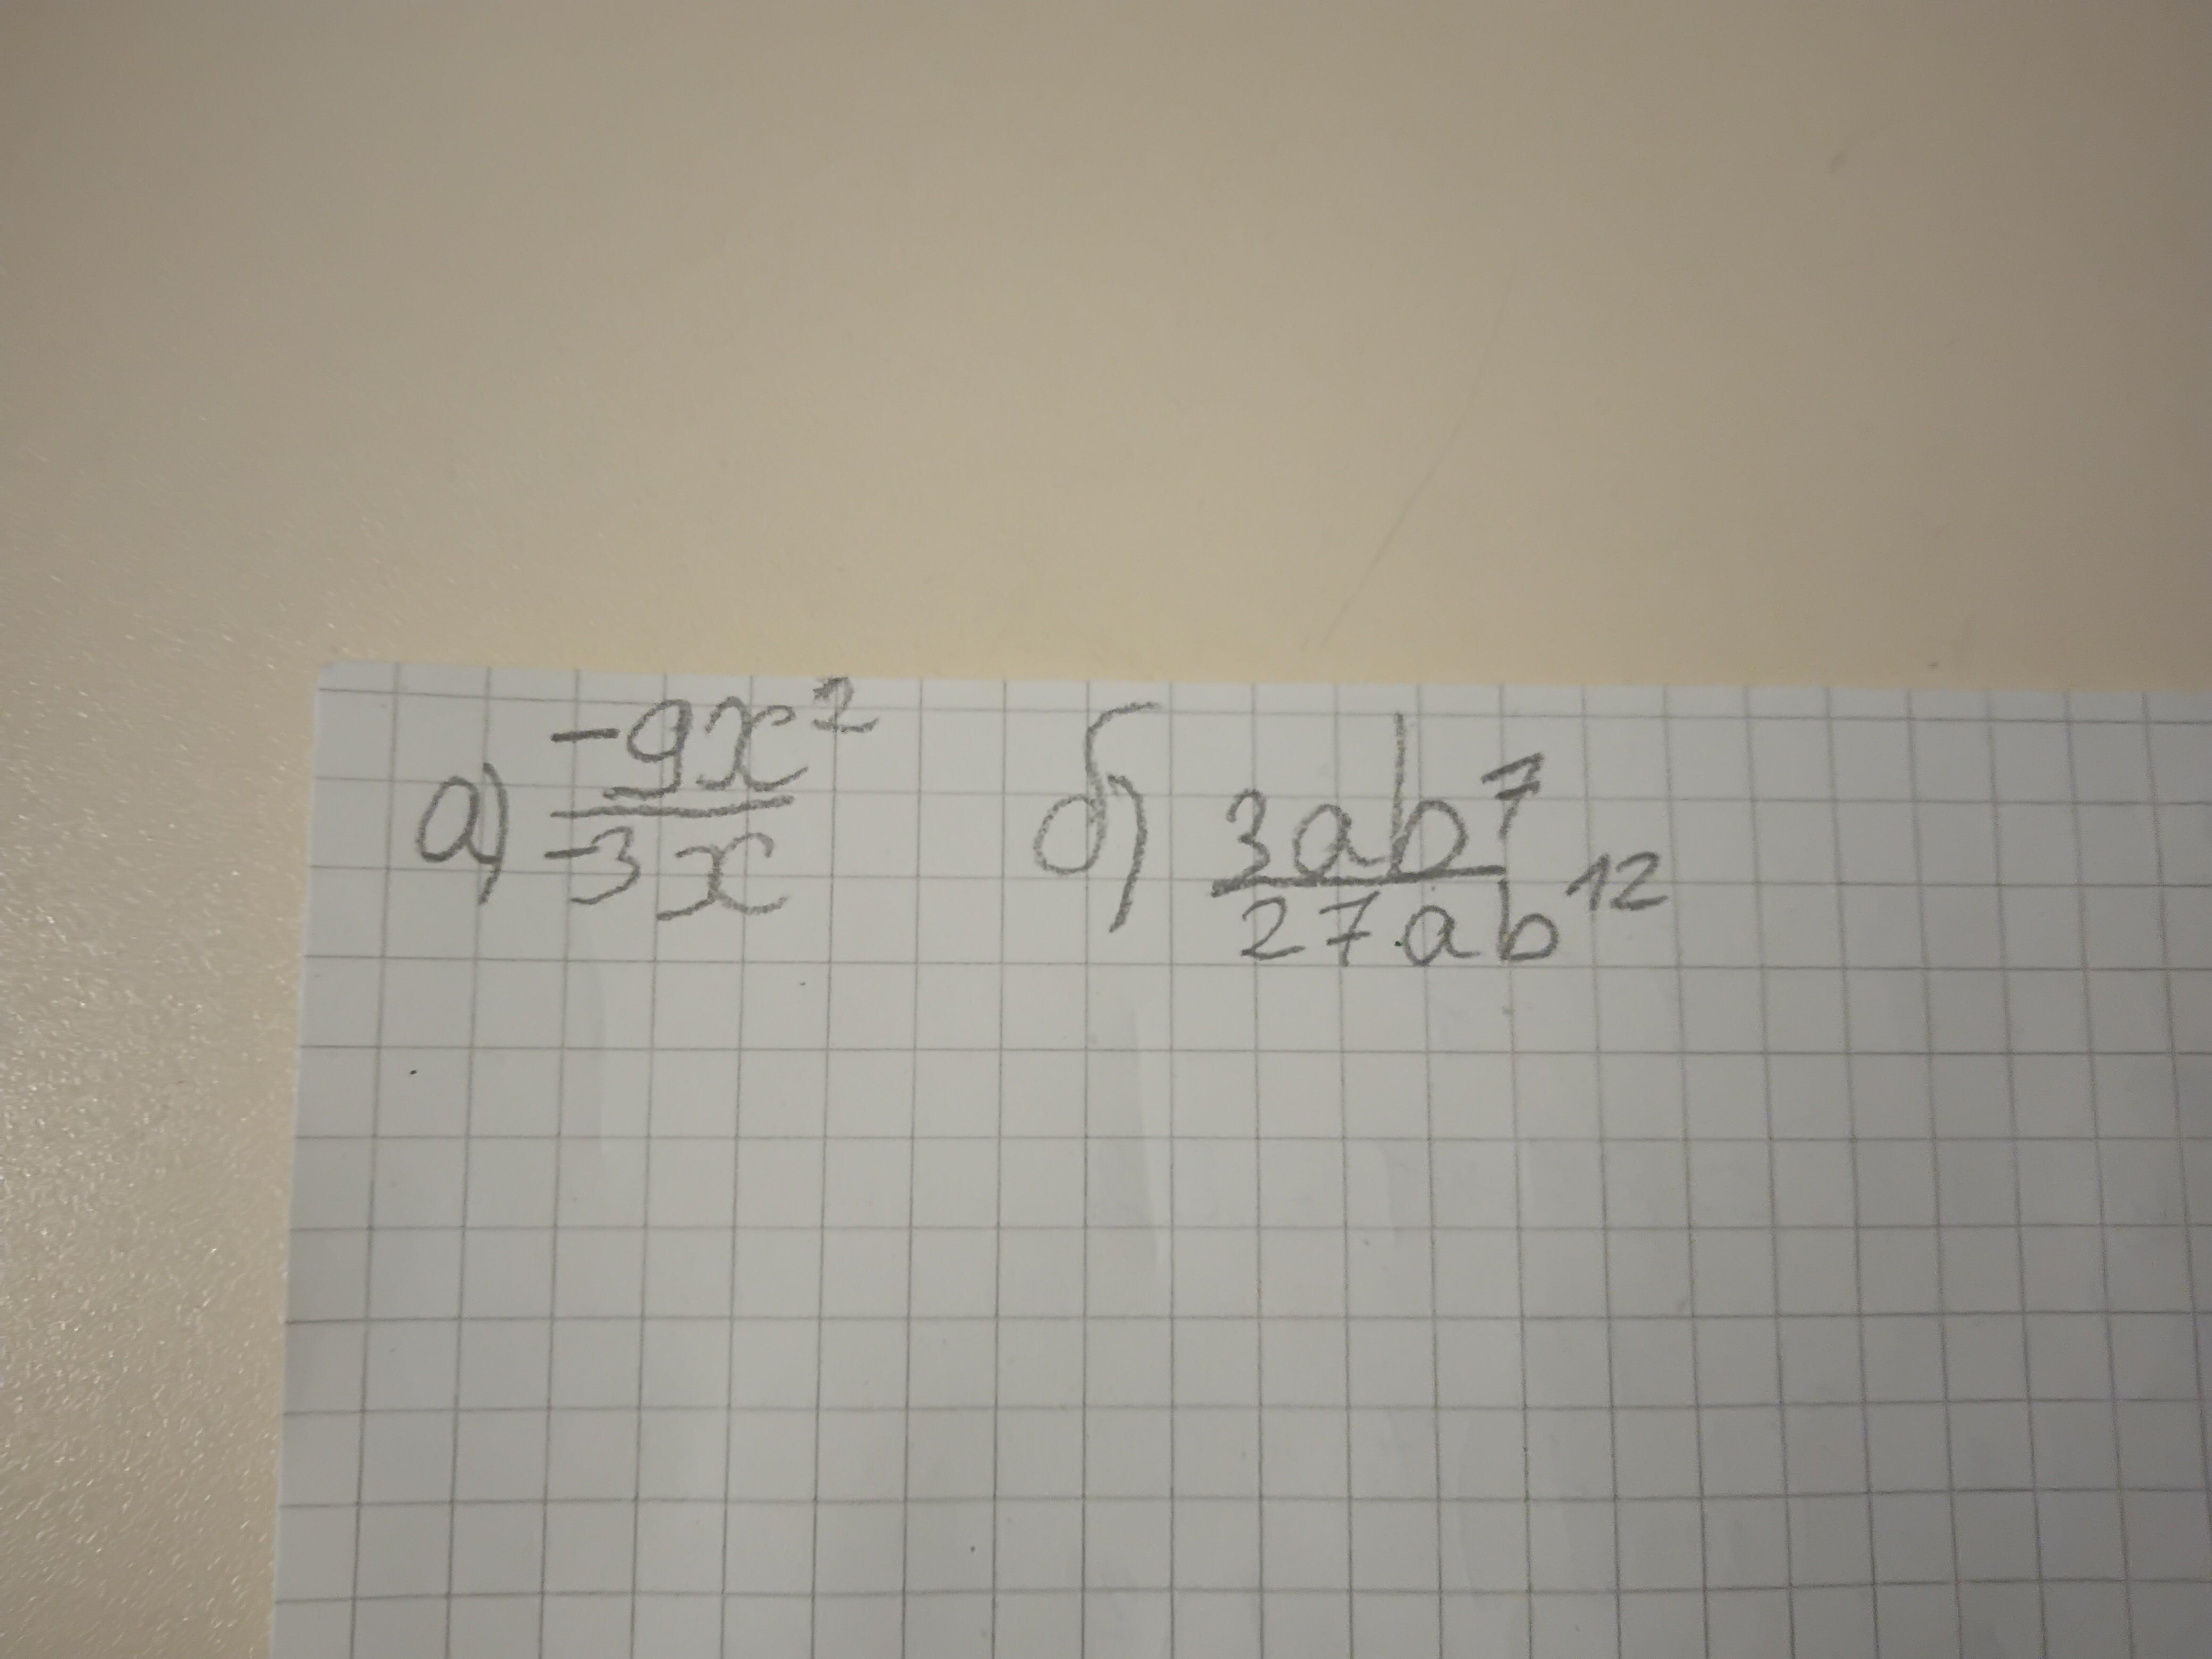 а) -9x² / -3x б) 3ab⁷ / 27ab¹²